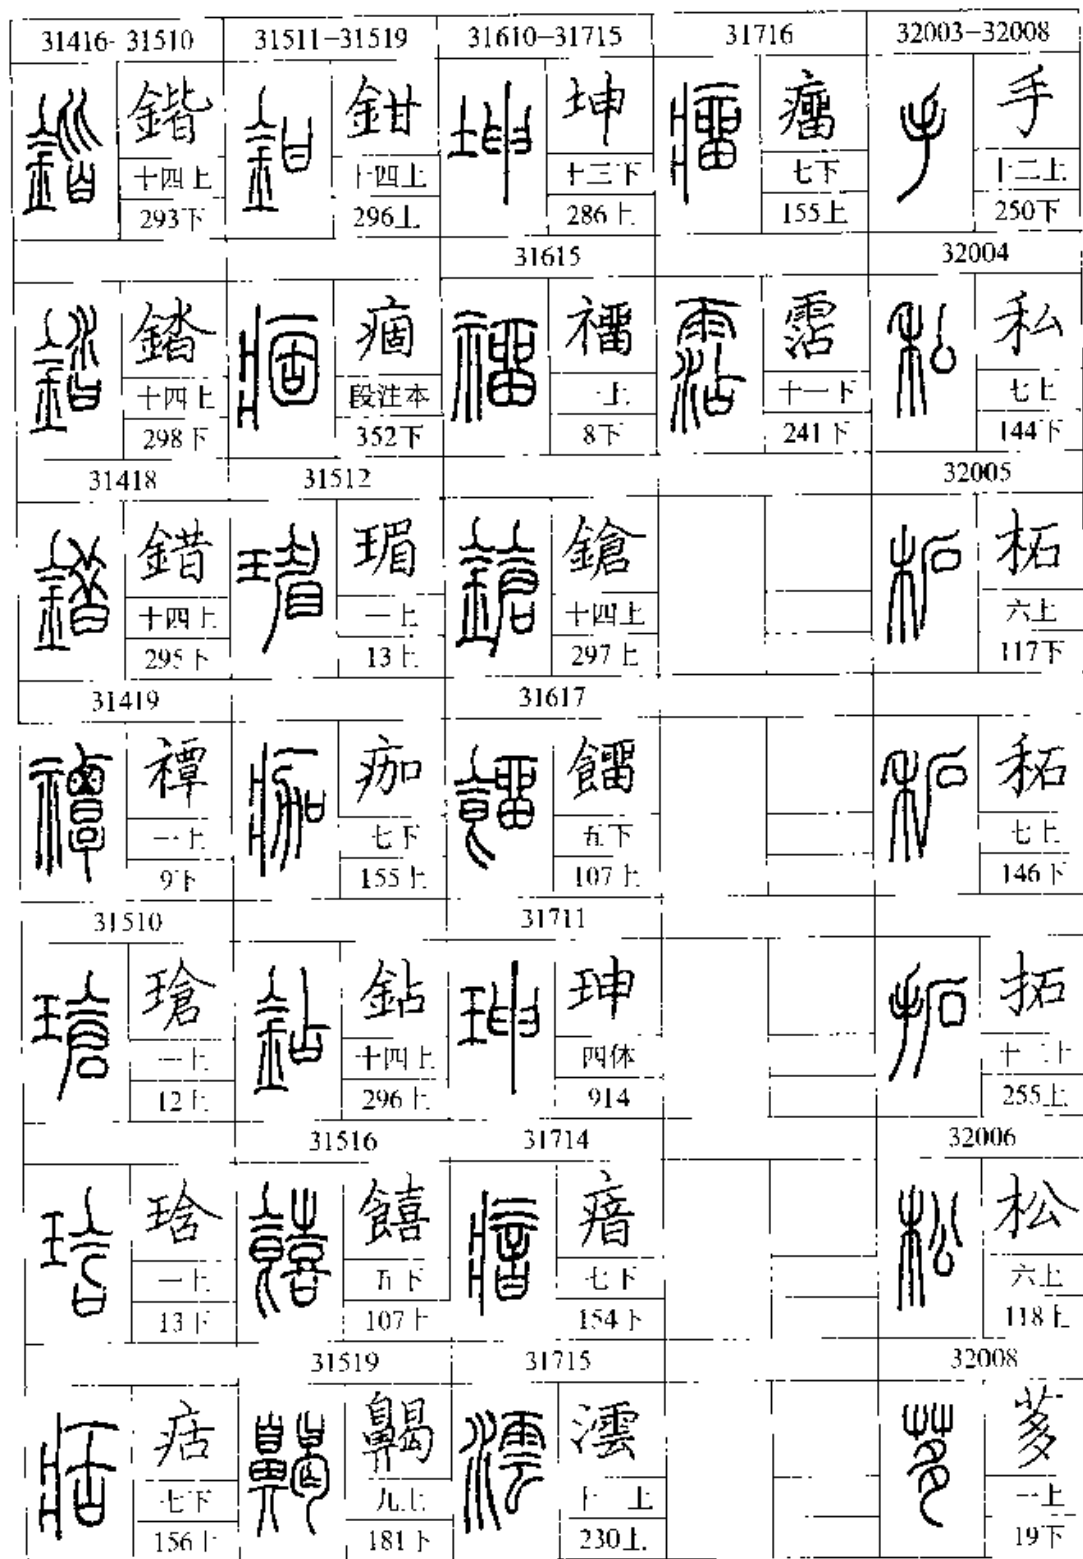 31416-31510
鍇
十四上
293下
錔
十四上
298下
31418
錯
十四上
295下
31419
禫
一上
9下
31510
瑲
一上
12上
琀
一上
13下
七下
156上
31511-31519
鉗
十四上
296上
痼
段注本
352下
31512
瑂
一上
13上
痂
七下
155上
鉆
十四上
296上
31516
饎
五下
107上
31519
九上
181下
31610-31715
坤
十三下
286上
31615
一上
8下
鎗
十四上
297上
31617
餾
五下
107上
31711
珅
四体
914
31714
瘖
七下
154下
31715
澐
十一上
230上
31716
瘤
七下
155上
霑
十一下
241下
32003-32008
手
十二上
250下
32004
私
七上
144下
32005
柘
六上
117下
䄷
七上
146下
拓
十二上
255上
32006
松
六上
118上
32008
一上
19下